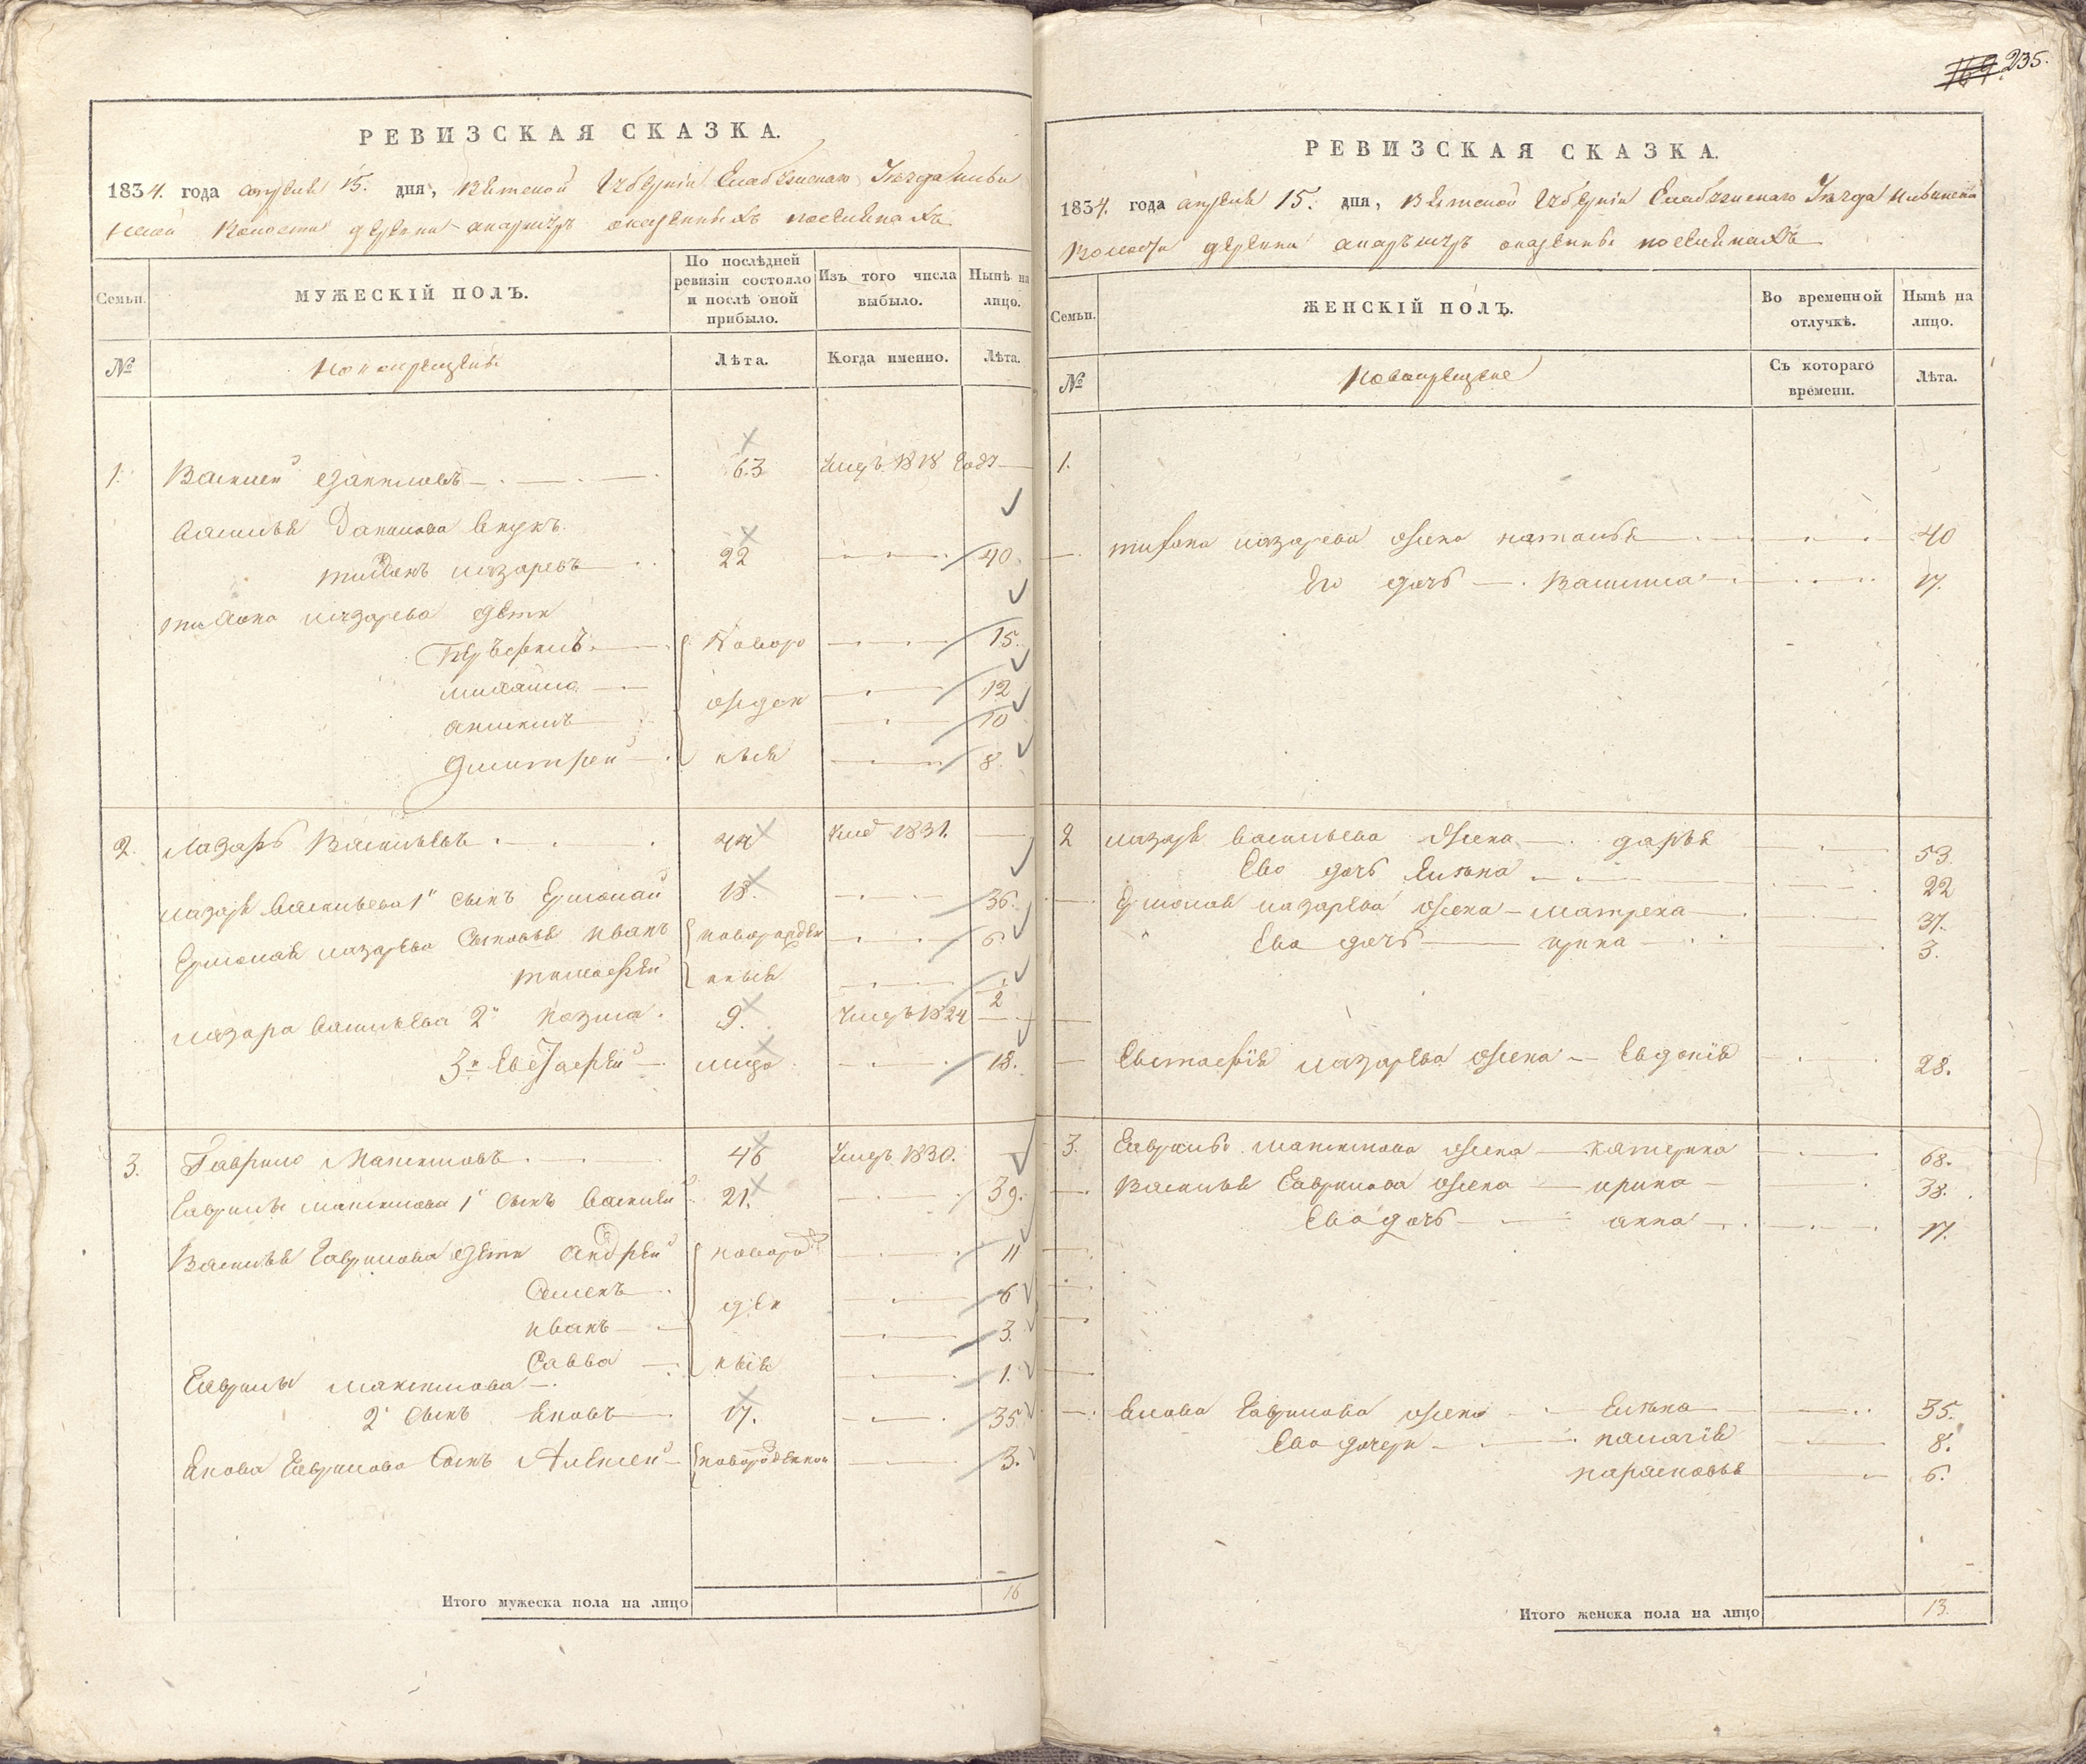 235.
РЕВИЗСКАЯ СКАЗКА.
1834. года апреля 15. дня, Вятской Губернiи Елабужскаго Уезда
волости деревни о казенныхъ поселянахъ
Семьи.
МУЖЕСКІЙ ПОЛЪ.
По послѣдней ревизіи состояло и послѣ оной прибыло.
Изъ того числа выбыло.
Нынѣ на лицо.
№
Новокрещены
Лѣта.
Когда именно.
Лѣта.
1. Василей Даниловъ 63 умеръ 1818 году
Василья Данилова внукъ
тихонъ лазаревъ 22 40
тихона лазарева дети
Новоро 15.
михайла 12
ожден 10
дмитрей ныя 8.
2. Лазарь Васильевъ 44 умер 1831.
лазаря васильева 1й сынъ Ермолай 18. 36.
Ермолая лазарева сыновья иванъ новорожден 6
тимофей ныя 2
лазаря васильева 2й козма. 9. умеръ 1824
3й Евстафей 18.
3. Гаврило Максимовъ 46 умеръ 1830.
Гаврилы максимова 1й сынъ василей 21. 39.
Василья Гаврилова дети Андрей новоро 11
Семенъ жден 6
иванъ 3.
Савва ныя 1.
Гаврилы максимова
2й сынъ яковъ 17. 35
Якова Гаврилова сынъ Алексей новорожденной 3.
Итого мужеска пола на лицо 16
РЕВИЗСКАЯ СКАЗКА.
1834. года апреля 15. дня, Вятской Губернiи Елабужскаго Уезда
Волости деревни о казенныхъ поселянахъ
Семьи.
ЖЕНСКІЙ ПОЛЪ.
Во временной отлучкѣ.
Нынѣ на лицо.
№
Новокрещене
Съ котораго времени.
Лѣта.
1.
тихона лазарева жена наталья 40
Ево дочь Василиса 17.
2 лазаря васильева жена дарья 53.
Ево дочь 22
Ермолая лазарева жена матрена 37.
Ево дочь ирина 3.
Евстафiя лазарева жена Евдокiя 28.
3. Гаврилы максимова жена катерина 68.
Василья Гаврилова жена ирина 38.
Ево дочь анна 17.
Якова Гаврилова жена 35.
Ево дочери палагiя 8.
парасковья 6.
Итого женска пола на лицо 13.